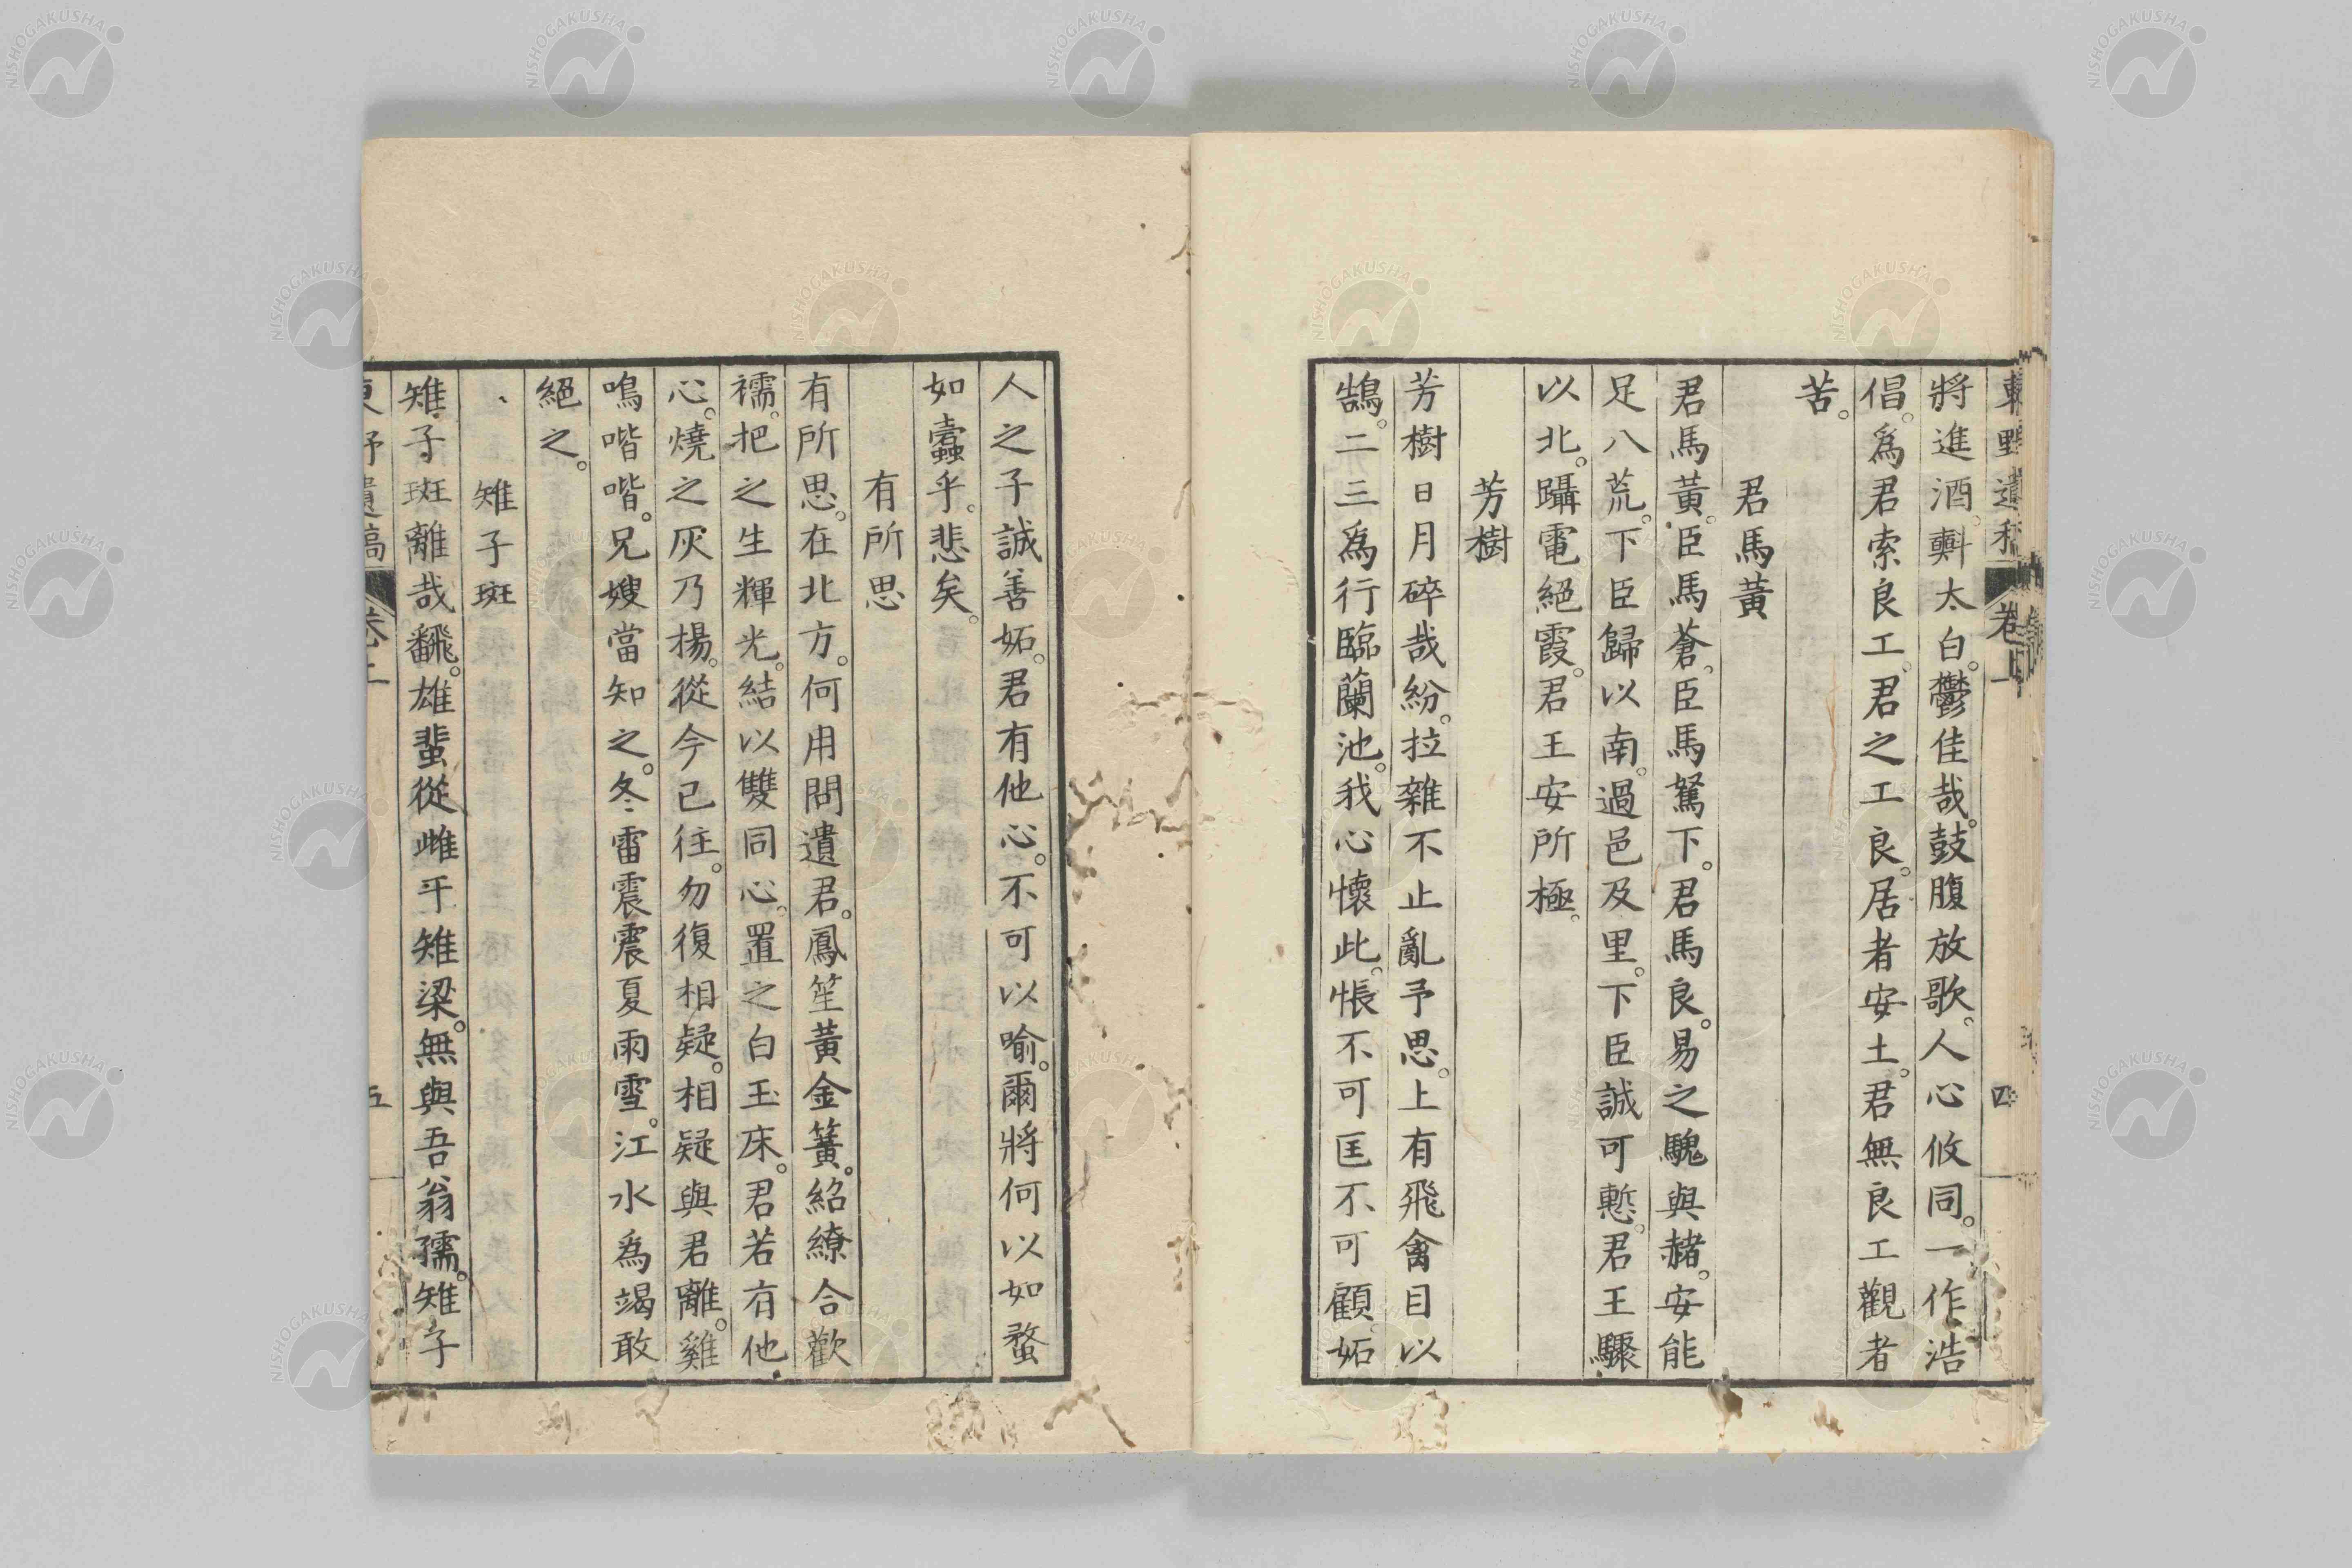 東野遺稿 卷上 四
將進酒。㪺太白。鬱佳哉。鼓腹放歌。人心攸同。一作浩
倡。爲君索良工。君之工良。居者安土。君無良工觀者
苦。
君馬黃
君馬黃。臣馬蒼。臣馬駑下。君馬良。易之騩與赭。安能
足八荒。下臣歸以南。過邑及里。下臣誠可慙。君王驟
以北。躡電絕霞。君王安所極。
芳樹
芳樹日月碎哉紛。拉雜不止亂予思。上有飛禽目以
鵠。二三爲行臨蘭池。我心懷此。悵不可匡不可顧。妬
人之子誠善妬。君有他心。不可以喻。爾將何以如蝥
如蠹乎。悲矣。
有所思
有所思。在北方。何用問遺君。鳳笙黃金簧。紹繚合歡
襦。把之生輝光。結以雙同心。置之白玉床。君若有他
心。燒之灰乃揚。從今已往。勿復相疑。相疑與君離。雞
鳴喈喈。兄嫂當知之。冬雷震震夏雨雪。江水爲竭敢
絕之。
雉子斑
雉子斑離哉飜。雄蜚從雌乎雉梁。無與吾翁孺。雉子
東野遺稿 卷上 五
NISHOGAKUSHA